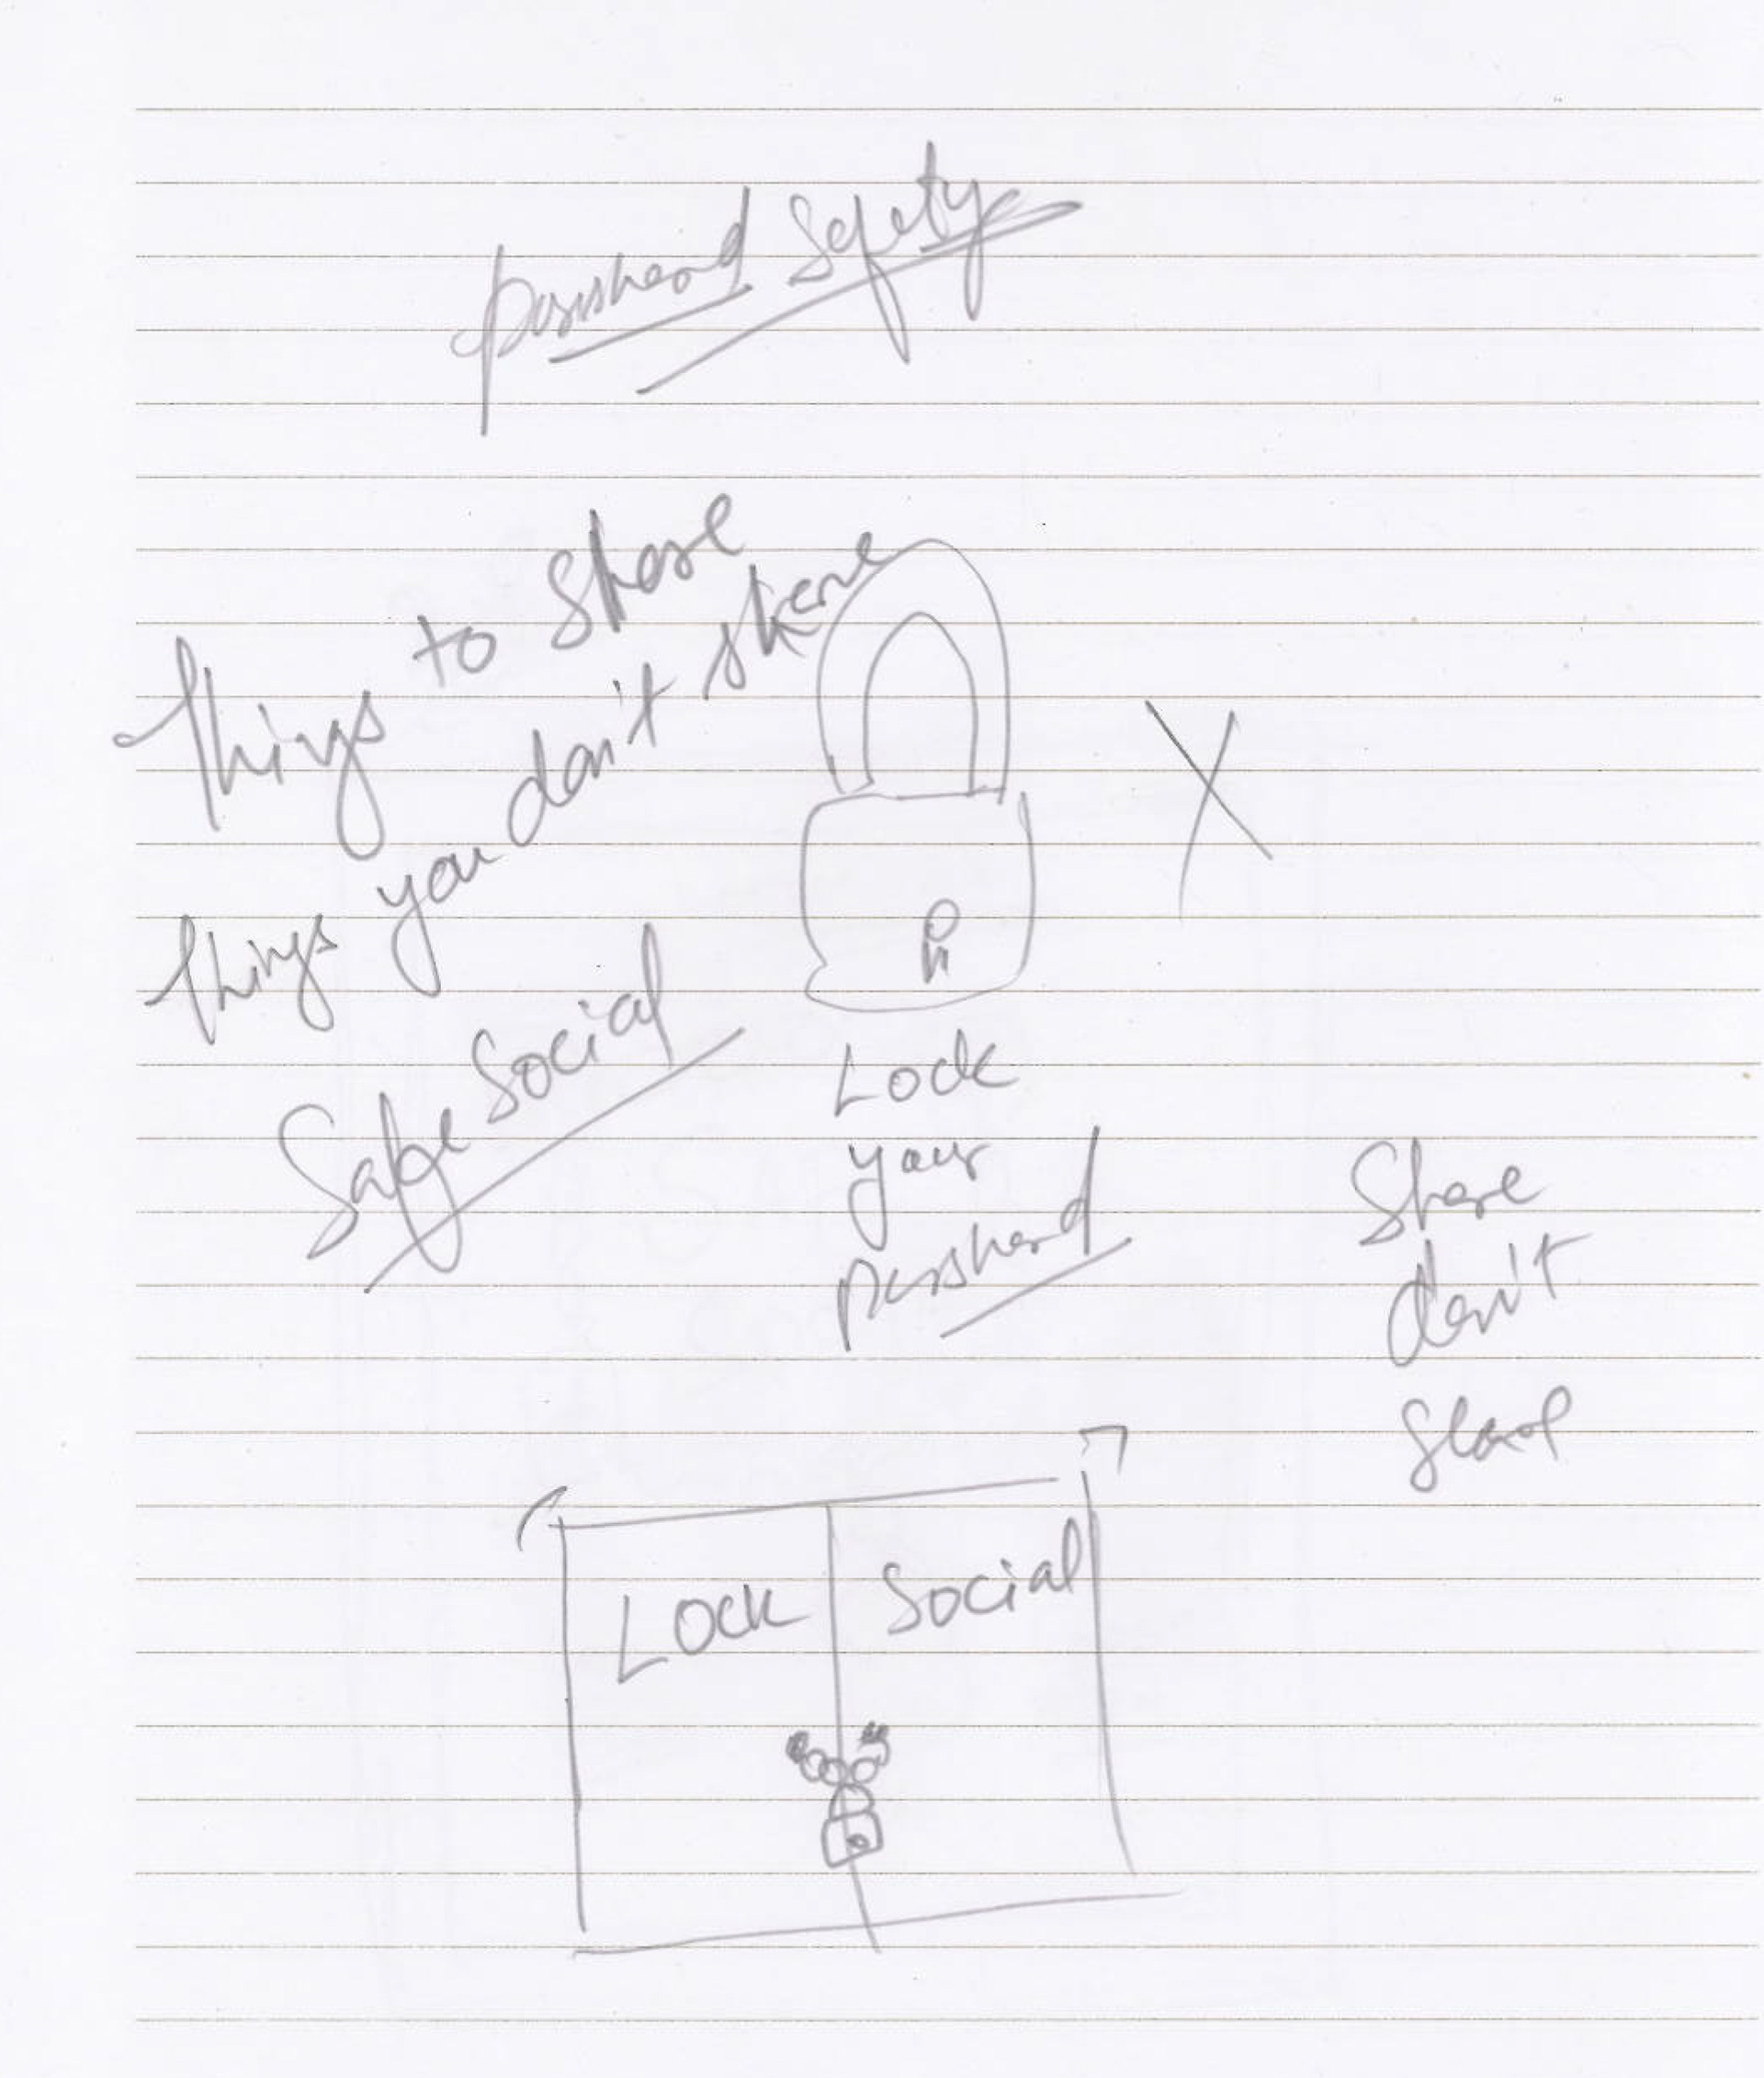 password Safety
things to share
things you don't share
Safe Social
X
Lock
your
password
Share
don't
Share
LOCK
Social